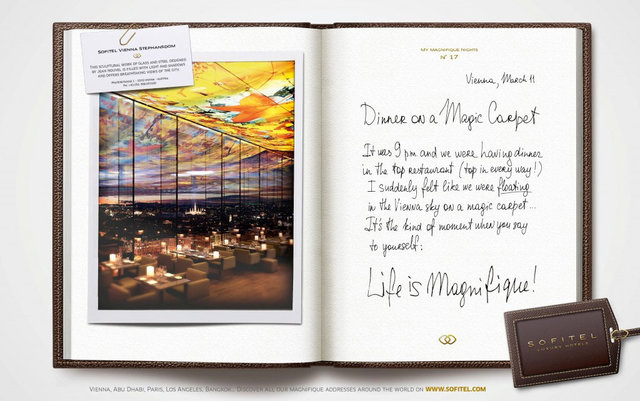 SOFITEL VIENNA STEPHANSDOM
THIS SCULPTURAL WORK OF GLASS AND STEEL DESIGNED
BY JEAN NOUVEL IS FILLED WITH LIGHT AND SHADOWS
AND OFFERS BREATHTAKING VIEWS OF THE CITY.
MY MAGNIFIQUE NIGHTS
N° 17
Vienna, March 11
Dinner on a Magic Carpet
It was 9 pm and we were having dinner
in the top restaurant (top in every way!)
I suddenly felt like we were floating
in the Vienna sky on a magic carpet...
It's the kind of moment when you say
to yourself:
Life is Magnifique!
SOFITEL
LUXURY HOTELS
VIENNA, ABU DHABI, PARIS, LOS ANGELES, BANGKOK... DISCOVER ALL OUR MAGNIFIQUE ADDRESSES AROUND THE WORLD ON WWW.SOFITEL.COM